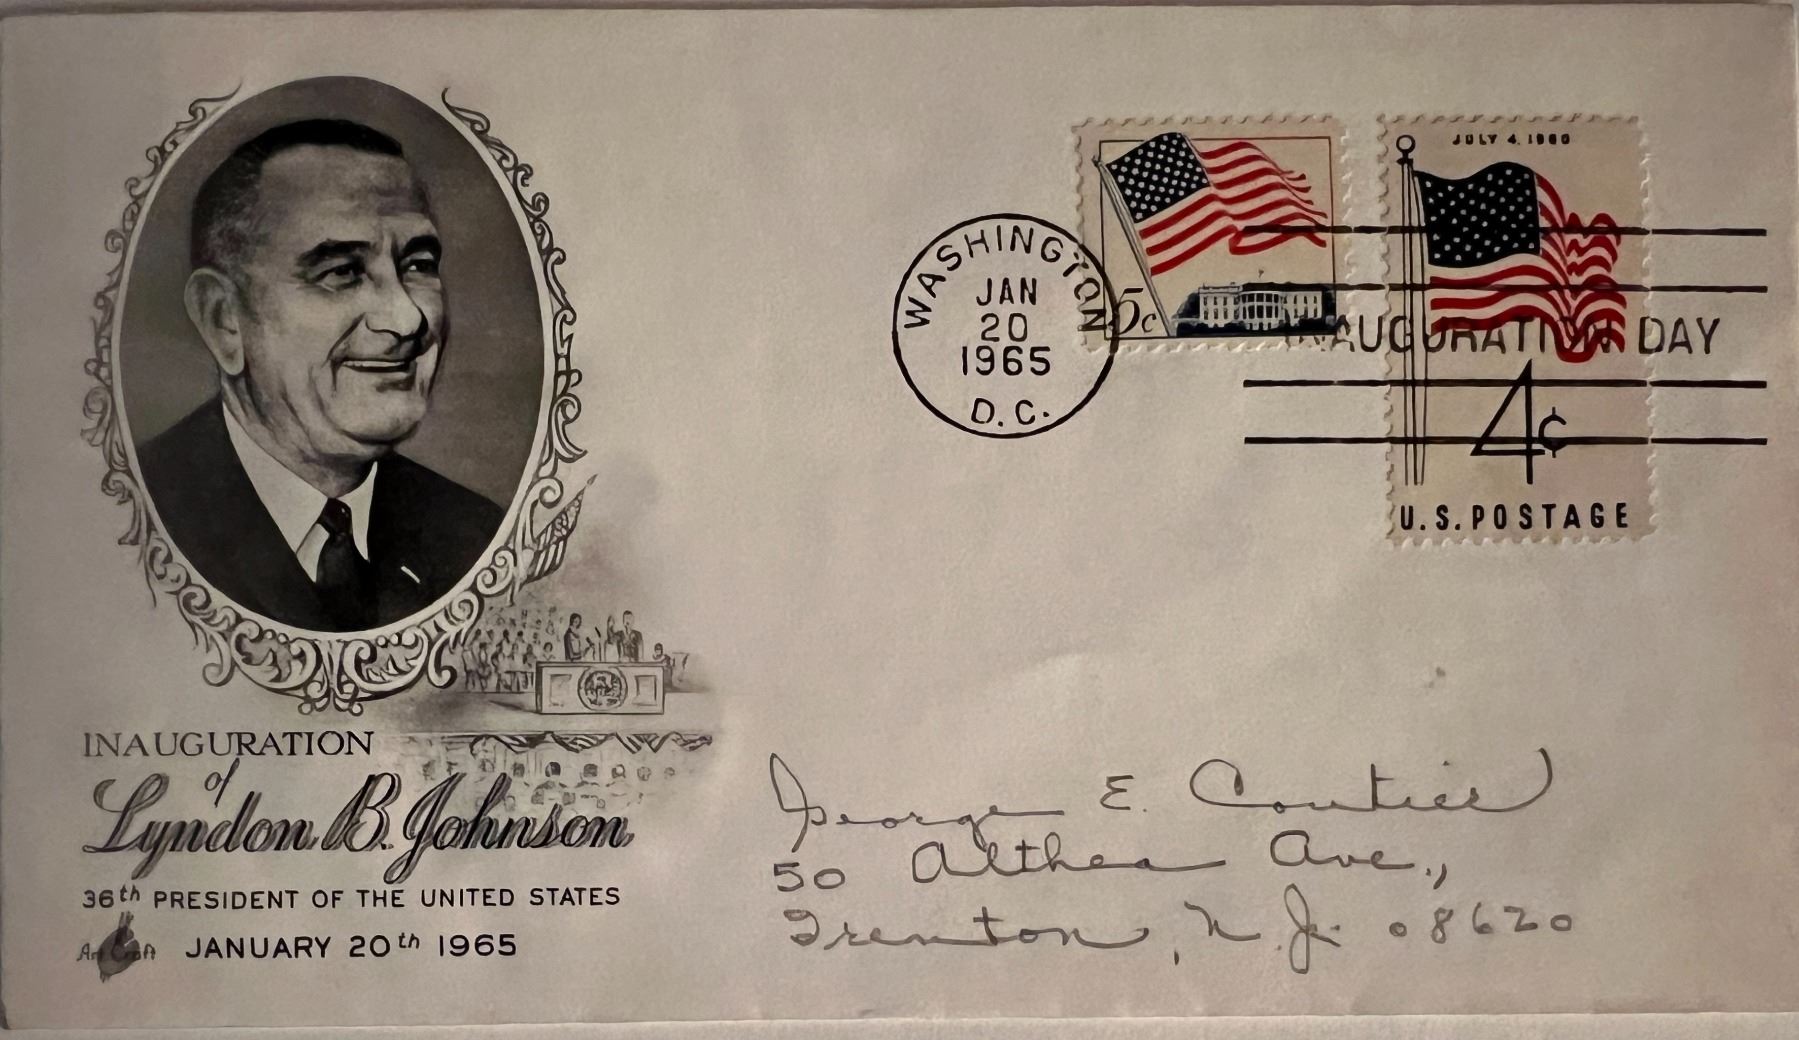 INAUGURATION
of
Lyndon B. Johnson
36th PRESIDENT OF THE UNITED STATES
Art Craft JANUARY 20th 1965
WASHINGTON
JAN
20
1965
D.C.
5c
JULY 4, 1960
INAUGURATION DAY
4¢
U.S. POSTAGE
George E. Coutier
50 Althea Ave.,
Trenton, N.J. 08620